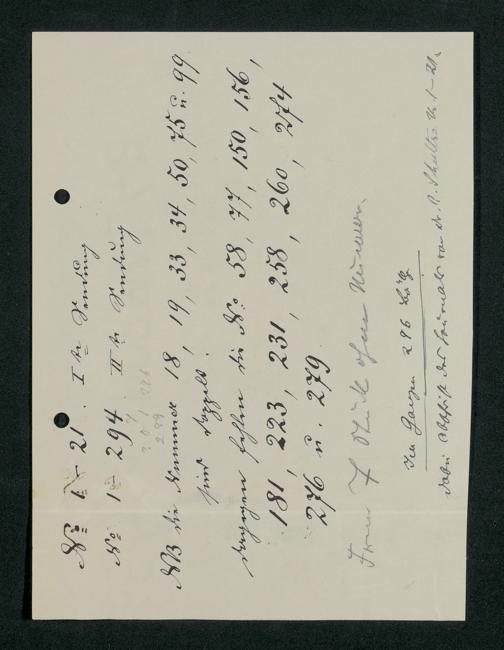 No 1 – 21. I te Sendung
No 1 – 294 II te Sendung
NB die Nummer 18, 19, 33, 34, 50, 75 u. 99
sind doppelt.
dagegen fehlen die No 58, 77, 150, 156,
181, 223, 231, 258, 260, 274
276 u. 279.
Ferner 7 Stück ohne Nummern.
Im Ganzen 296
dabei Abschrift des Journals von Dr. A. Schultze N. 1–21.